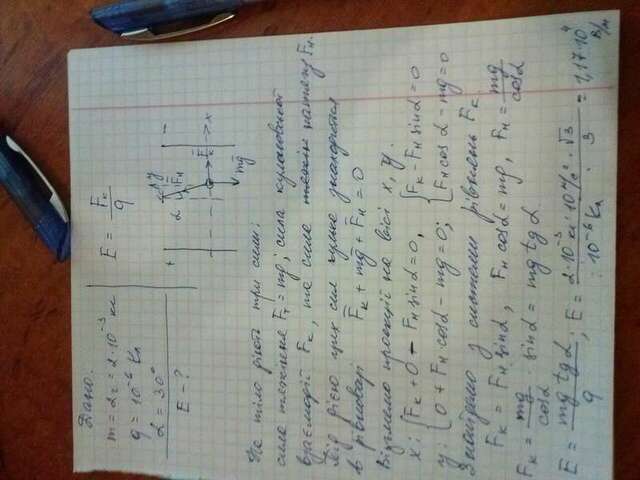 Дано:
m = 2г = 2·10⁻³ кг
q = 10⁻⁶ Кл
α = 30°
E - ?
E = Fк/q
+ -
α y
Fн
Fк x
mg
На тіло діють три сили:
сила тяжіння Fт = mg; сила кулонівської
взаємодії Fк, та сила натягу Fн.
Під дією цих сил кулька знаходиться
в рівновазі Fк + mg + Fн = 0
Візьмемо проекції на вісі x, y.
x: { Fк + 0 - Fн sinα = 0, { Fк - Fн sinα = 0
y: { 0 + Fн cosα - mg = 0; { Fн cosα - mg = 0
Знайдемо з системи рівнянь Fк
Fк = Fн sinα, Fн cosα = mg, Fн = mg/cosα
Fк = mg/cosα · sinα = mg tgα
E = mg tgα/q, E = 2·10⁻³ кг · 10 м/с² · √3 / 10⁻⁶ Кл · 3 = 1,17·10⁴ В/м